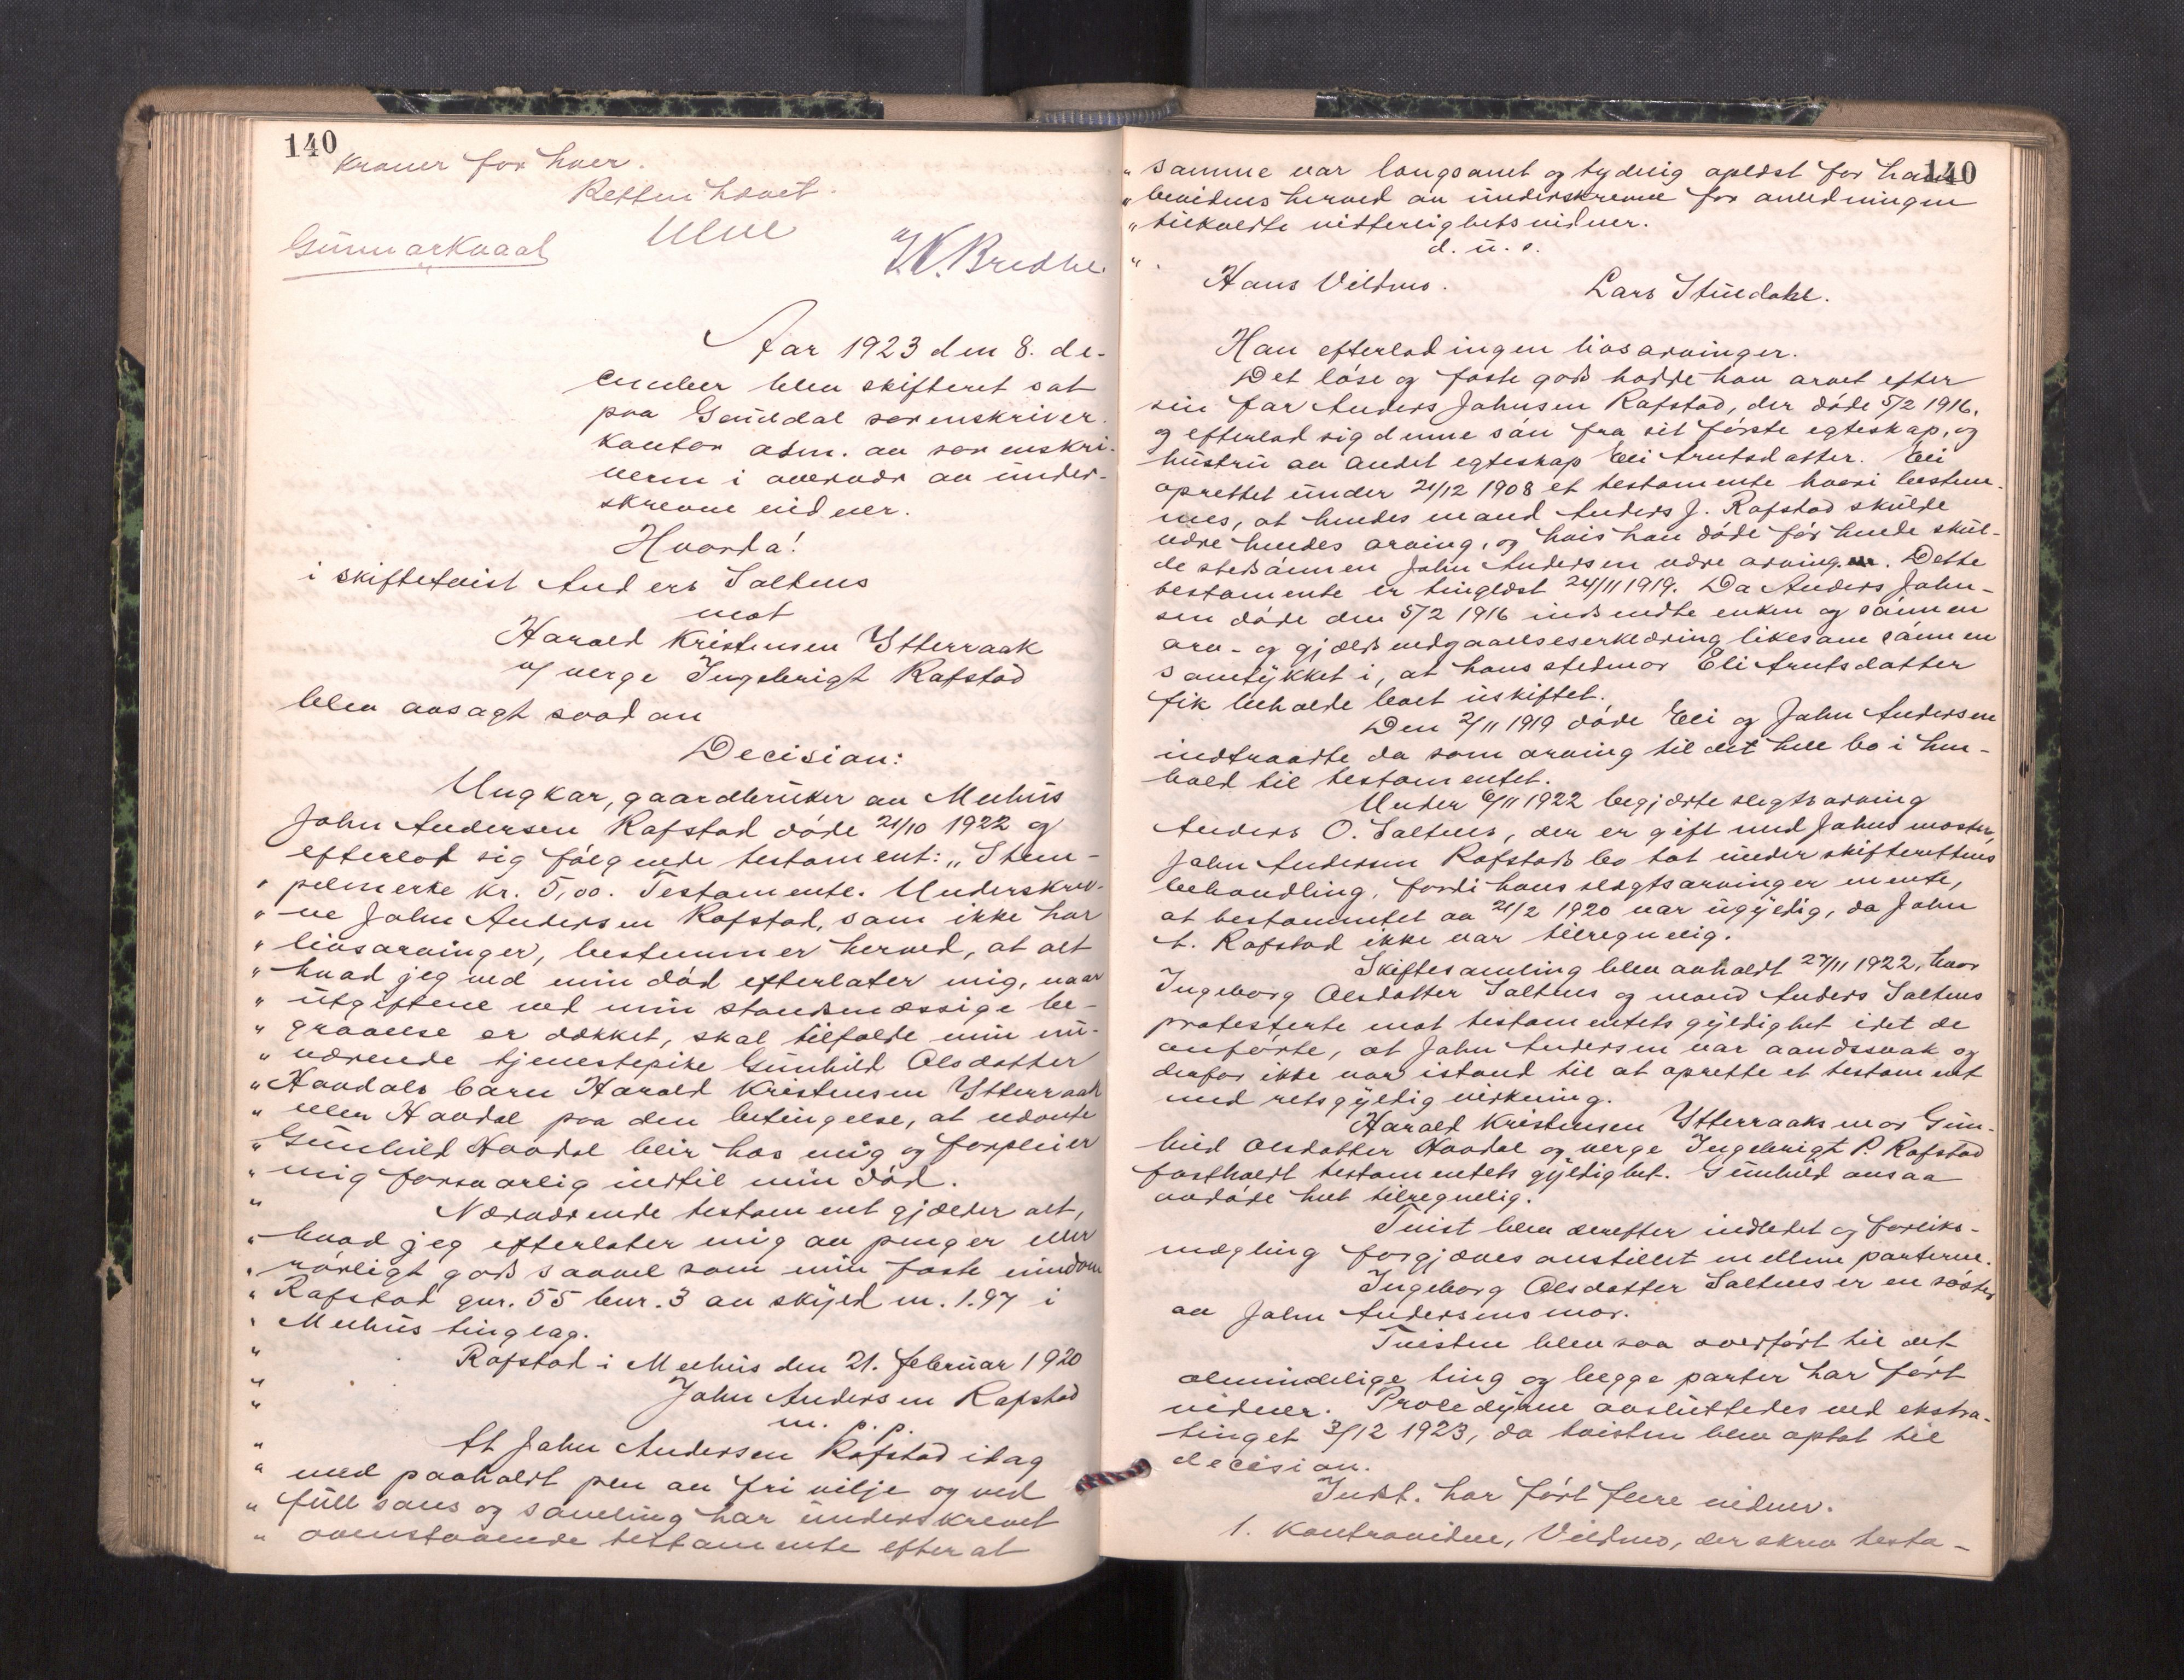 140
Kroner for hver.
Retten hævet.
Ulve
Gunnar Kvaal
W. Bredhe
Aar 1923 den 8. de-
cember blev skifteret sat
paa Gauldal sorenskriver-
kontor adm. av sorenskri-
veren i overvær av under-
skrevne vidner.
Hvorda!
i skiftetvist Anders Saltnes
mot
Harald Kristensen Ytterraak
v/ verge Ingebrigt Rafstad
blev avsagt saadan
Decision:
Ungkar, gaardbruker av Melhus
John Andersen Rafstad döde 21/10 1922 og
efterlot sig fölgende testament: "Stem-
" pelmerke kr. 5,00. Testamente. Underskrev-
" ne John Andersen Rafstad, som ikke har
" livsarvinger, bestemmer herved, at alt
" hvad jeg ved min död efterlater mig, naar
" utgiftene ved min standsmæssige be-
" gravelse er dækket, skal tilfalde min nu-
" værende tjenestepike Gunhild Olsdatter
" Havdals barn Harald Kristensen Ytterraak
" eller Havdal paa den betingelse, at nævnte
" Gunhild Havdal blir hos mig og forpleier
" mig forsvarlig indtil min död.
" Nærværende testament gjælder alt,
" hvad jeg efterlater mig av penger eller
" rörligt gods saavel som min faste eiendom
" Rafstad gnr. 55 bnr. 3 av skyld m. 1.97 i
" Melhus tinglag.
" Rafstad i Melhus den 21. februar 1920
" John Andersen Rafstad
" m. p. p.
" At John Andersen Rafstad idag
" med paaholdt pen av fri vilje og ved
" full sans og samling har underskrevet
" ovenstaaende testamente efter at
140
" samme var langsomt og tydelig oplæst for ham
" bevidnes herved av underskrevne for anledningen
" tilkaldte vitterlighetsvidner.
" d. u. s.
Hans Vildmo. Lars Stuedahl.
Han efterlod ingen livsarvinger.
Det löse og faste gods hadde han arvet efter
sin far Anders Johnsen Rafstad, der döde 5/2 1916.
og efterlod sig denne sön fra sit förste egteskap, og
hustru av andet egteskap Eli Arntsdatter. Eli
oprettet under 21/12 1908 et testamente hvori bestem-
mes, at hendes mand Anders J. Rafstad skulde
være hendes arving, og hvis han döde för hende skul-
de stedsönnen John Andersen være arving. Dette
testamente er tinglæst 24/11 1919. Da Anders John-
sen döde den 5/2 1916 indsendte enken og sönnen
arv- og gjældsvedgaaelseserklæring likesom sönnen
samtykket i, at hans stedmor Eli Arntsdatter
fik beholde boet uskiftet.
Den 2/11 1919 döde Eli og John Andersen
indtraadte da som arving til det hele bo i hen-
hold til testamentet.
Under 6/11 1922 begjærte slegtsarving
Anders O. Saltnes, der er gift med Johns moster,
John Andersen Rafstads bo tat under skifterettens
behandling, fordi hans slegtsarvinger mente,
at testamentet av 21/2 1920 var ugyldig, da John
A. Rafstad ikke var tilregnelig.
Skiftesamling blev avholdt 27/11 1922, hvor
Ingeborg Olsdatter Saltnes og mand Anders Saltnes
protesterte mot testamentets gyldighet idet de
anförte, at John Andersen var aandssvak og
derfor ikke var istand til at oprette et testament
med retsgyldig virkning.
Harald Kristensen Ytterraaks mor Gun-
hild Olsdatter Havdal og verge Ingebrigt P. Rafstad
fastholdt testamentets gyldighet. Gunhild ansaa
avdöde helt tilregnelig.
Tvist blev derefter indledet og forliks-
mægling forgjæves anstillet mellem parterne.
Ingeborg Olsdatter Saltnes er en söster
av John Andersens mor.
Tvisten blev saa overfört til det
almindelige ting og begge parter har fört
vidner. Proledyren avsluttedes ved ekstra-
tinget 3/12 1923, da tvisten blev optat til
decision.
Indst. har fört flere vidner.
1. Kontraviden, Vildmo, der skrev testa-